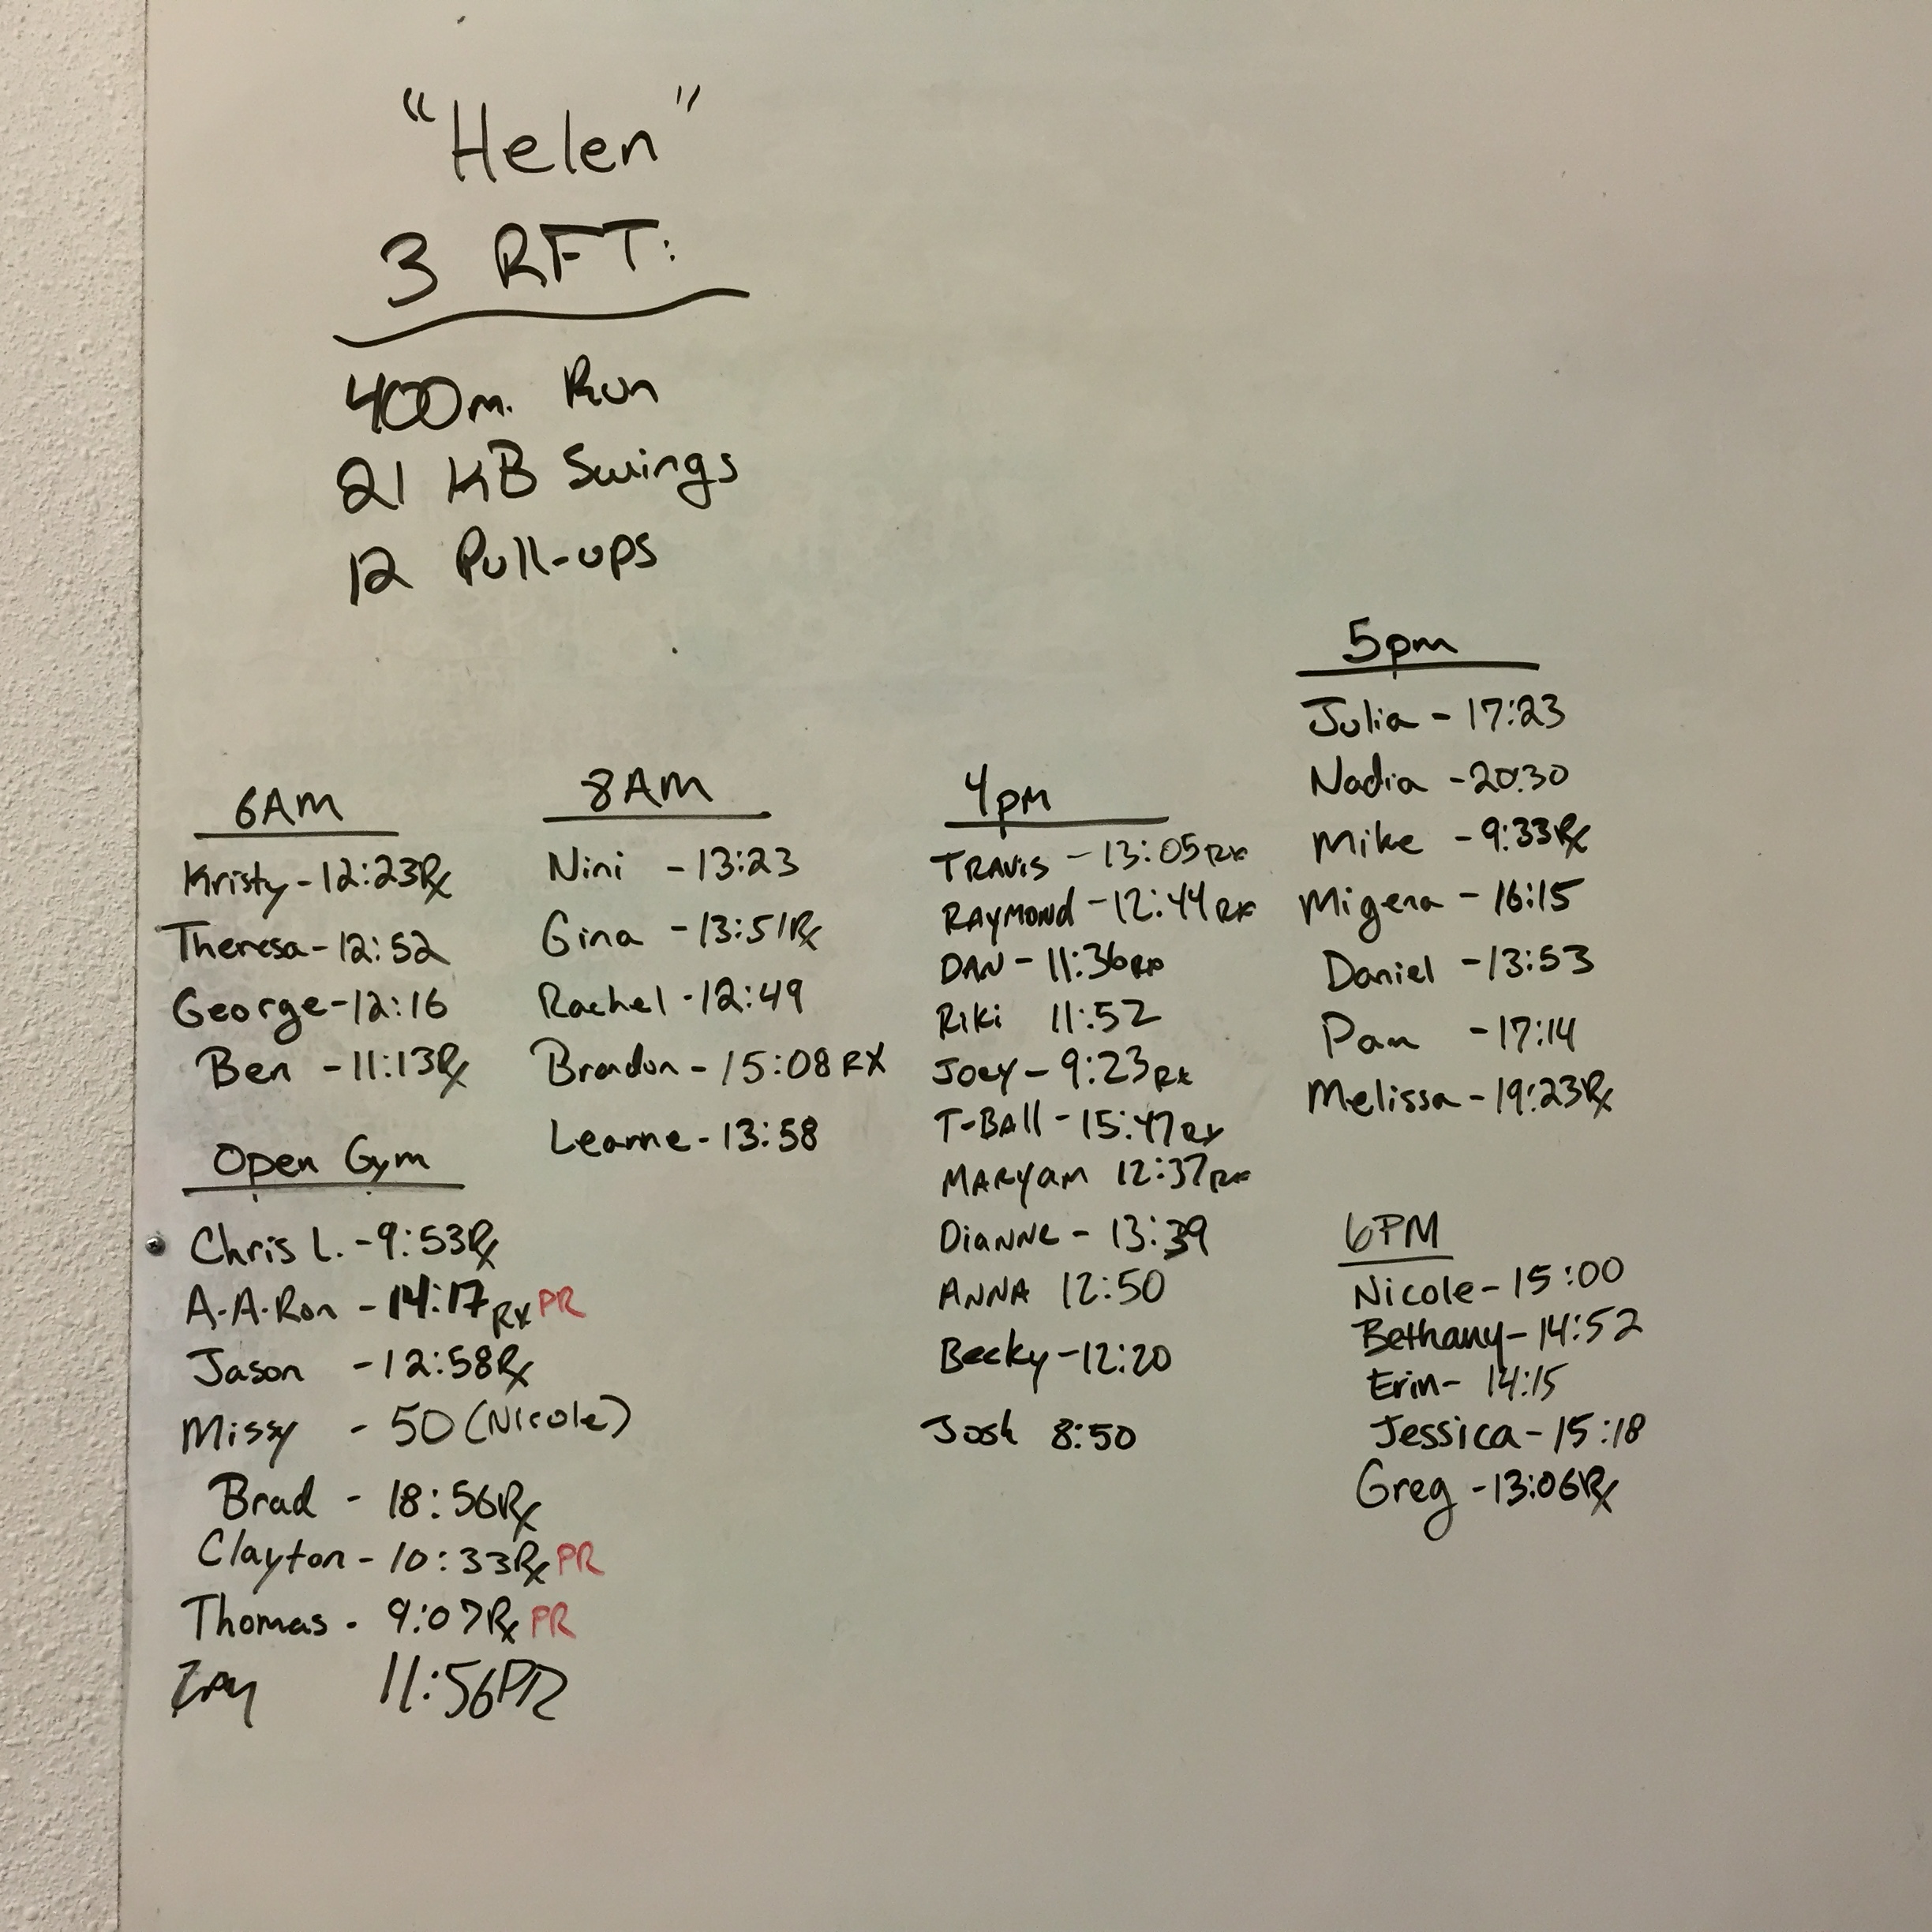 "Helen"
3 RFT:
400m. Run
21 KB Swings
12 Pull-ups
6AM
Kristy - 12:23Rx
Theresa - 12:52
George - 12:16
Ben - 11:13Rx
Open Gym
Chris L. - 9:53Rx
A-A-Ron - 14:17 Rx PR
Jason - 12:58Rx
Missy - 50 (Nicole)
Brad - 18:56Rx
Clayton - 10:33Rx PR
Thomas - 9:07Rx PR
11:56PR
8AM
Nini - 13:23
Gina - 13:51Rx
Rachel - 12:49
Brandon - 15:08 RX
Leanne - 13:58
4pm
TRAVIS - 13:05 RX
RAYMOND - 12:44 RX
DAN - 11:36 RX
RIKI 11:52
JOEY - 9:23 RX
T-BAll - 15:47 RX
MARYAM 12:37 RX
DIANNE - 13:39
ANNA 12:50
Becky - 12:20
Josh 8:50
5pm
Julia - 17:23
Nadia - 20:30
Mike - 9:33Rx
Migena - 16:15
Daniel - 13:53
Pam - 17:14
Melissa - 19:23Rx
6PM
Nicole - 15:00
Bethany - 14:52
Erin - 14:15
Jessica - 15:18
Greg - 13:06Rx